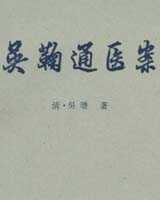 吴鞠通医案
清·吴瑭 著